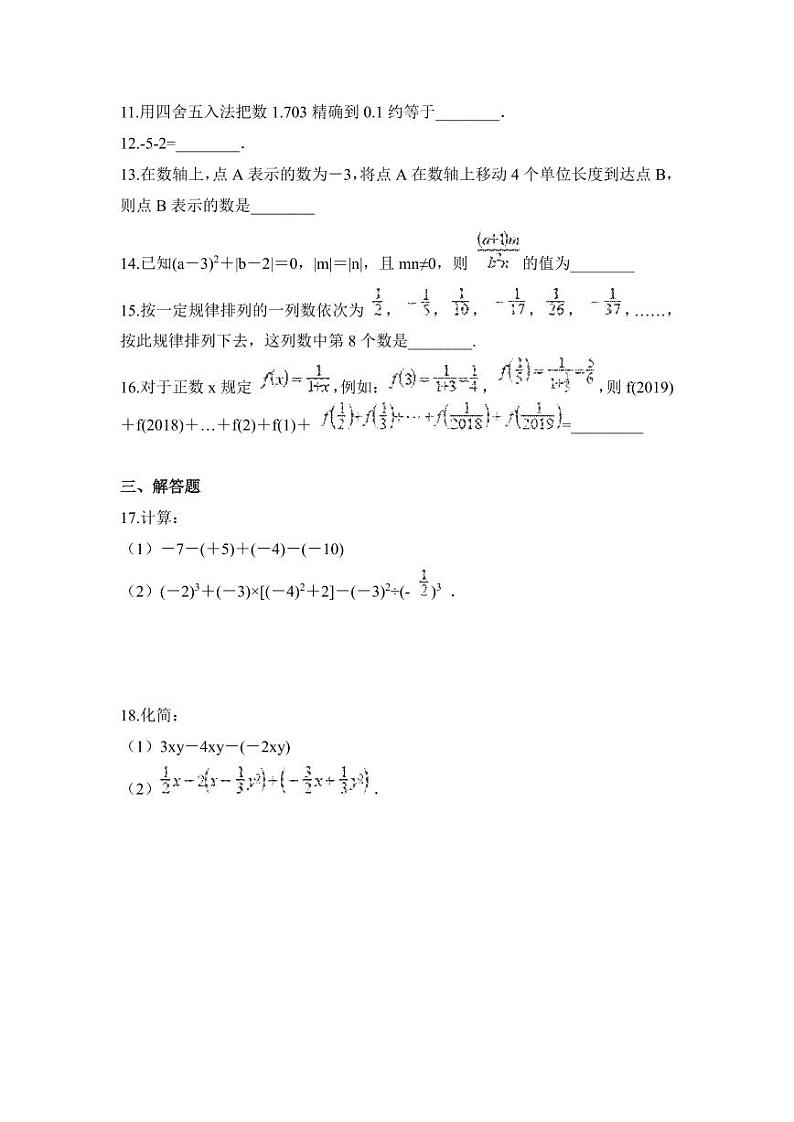 11.用四舍五入法把数 1.703 精确到 0.1 约等于________.
12.-5-2=________.
13.在数轴上，点 A 表示的数为－3，将点 A 在数轴上移动 4 个单位长度到达点 B，
则点 B 表示的数是________
14.已知(a－3)²＋|b－2|＝0，|m|＝|n|，且 mn≠0，则 (a+1)m/ 的值为________
15.按一定规律排列的一列数依次为 1/2，-1/5，1/10，-1/17，1/26，-1/37，……，
按此规律排列下去，这列数中第 8 个数是________.
16.对于正数 x 规定 f(x)=1/(1+x)，例如：f(3)=1/(1+3)=1/4，f(1/5)=1/(1+1/5)=5/6，则 f(2019)
＋f(2018)＋…＋f(2)＋f(1)＋ f(1/2)+f(1/3)+…+f(1/2018)+f(1/2019)=_________
三、解答题
17.计算：
（1）－7－(＋5)＋(－4)－(－10)
（2）(－2)³＋(－3)×[(－4)²＋2]－(－3)²÷(- 1/2)³ .
18.化简：
（1）3xy－4xy－(－2xy)
（2）1/2x-2(x-1/3y²)+(-3/2x+1/3y²).